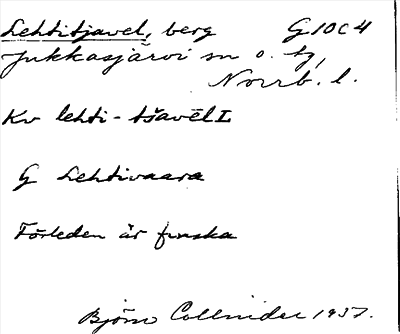 Lehtitjavel, berg G10C4
Jukkasjärvi sn o. tg,
Norrb. l.
Kv lehti-tšavēl I
G Lehtivaara
Förleden är finska
Björn Collinder 1937.